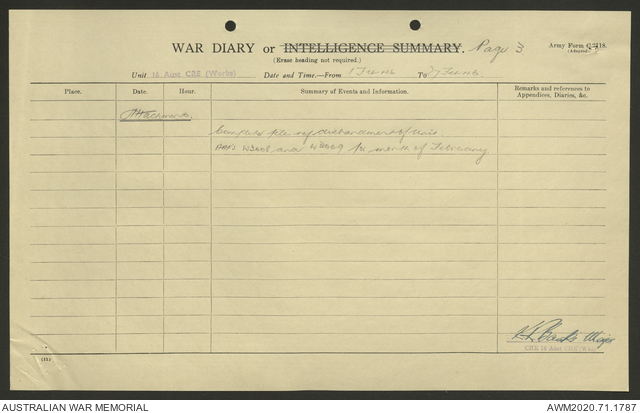 WAR DIARY or INTELLIGENCE SUMMARY. Page 3
Army Form C.2118.
(Adapted.)
(Erase heading not required.)
Unit 16 Aust CRE (Works) Date and Time.—From 1 To
Place. Date. Hour. Summary of Events and Information. Remarks and references to Appendices, Diaries, &c.
Attachments.
Complete file re disbandment of Unit
and for month of February
Major
CRE 16 Aust CRE (Wks)
(11)
AUSTRALIAN WAR MEMORIAL AWM2020.71.1787